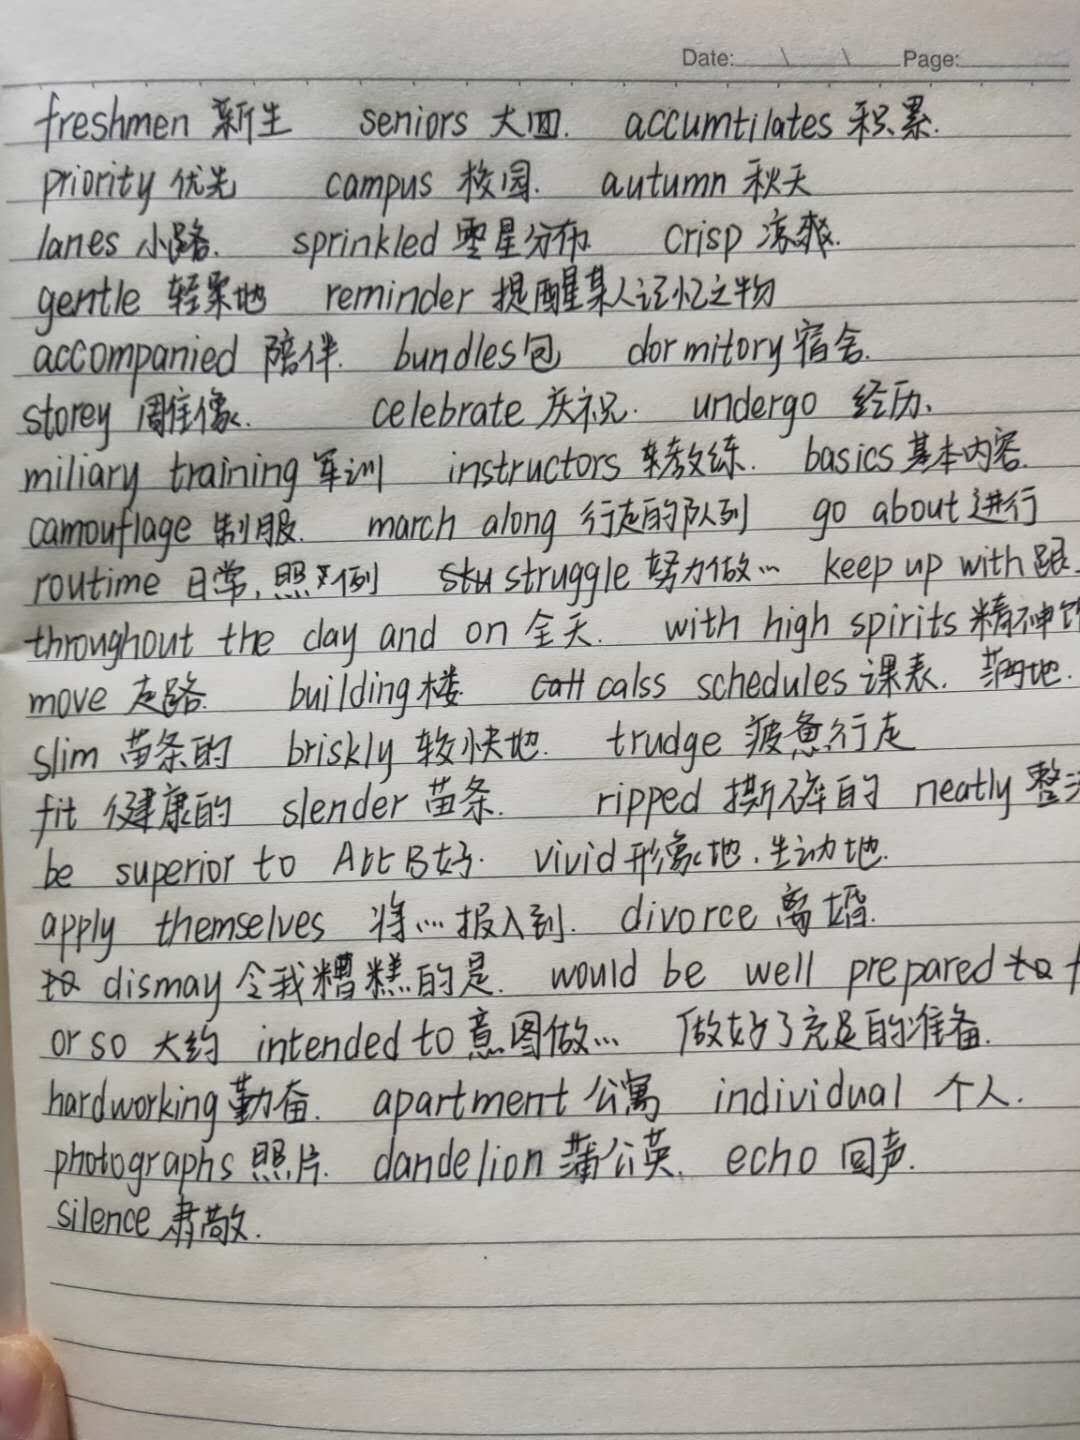 Date: \ \ Page:
freshmen 新生 seniors 大四. accumtilates 积累.
priority 优先 campus 校园. autumn 秋天
lanes 小路. sprinkled 零星分布 crisp 凉爽.
gentle 轻柔地 reminder 提醒某人记忆之物
accompanied 陪伴. bundles 包 dormitory 宿舍.
storey celebrate 庆祝. undergo 经历.
miliary training 军训 instructors 教练. basics 基本内容.
camouflage 制服. march along 行走的队列 go about 进行
routime 日常, 照例 struggle 努力做… keep up with 跟
throughout the day and on 全天. with high spirits 精神
move 走路. building 楼 calss schedules 课表.
slim 苗条的 briskly 较快地. trudge 疲惫行走
fit 健康的 slender 苗条. ripped 撕碎的 neatly 整
be superior to A比B好. vivid 形象地, 生动地.
apply themselves 将…报入到. divorce 离婚.
to dismay 令我糟糕的是. would be well prepared to
or so 大约 intended to 意图做… 做好了充足的准备.
hardworking 勤奋. apartment 公寓 individual 个人.
photographs 照片. dandelion 蒲公英. echo 回声.
silence 肃敬.